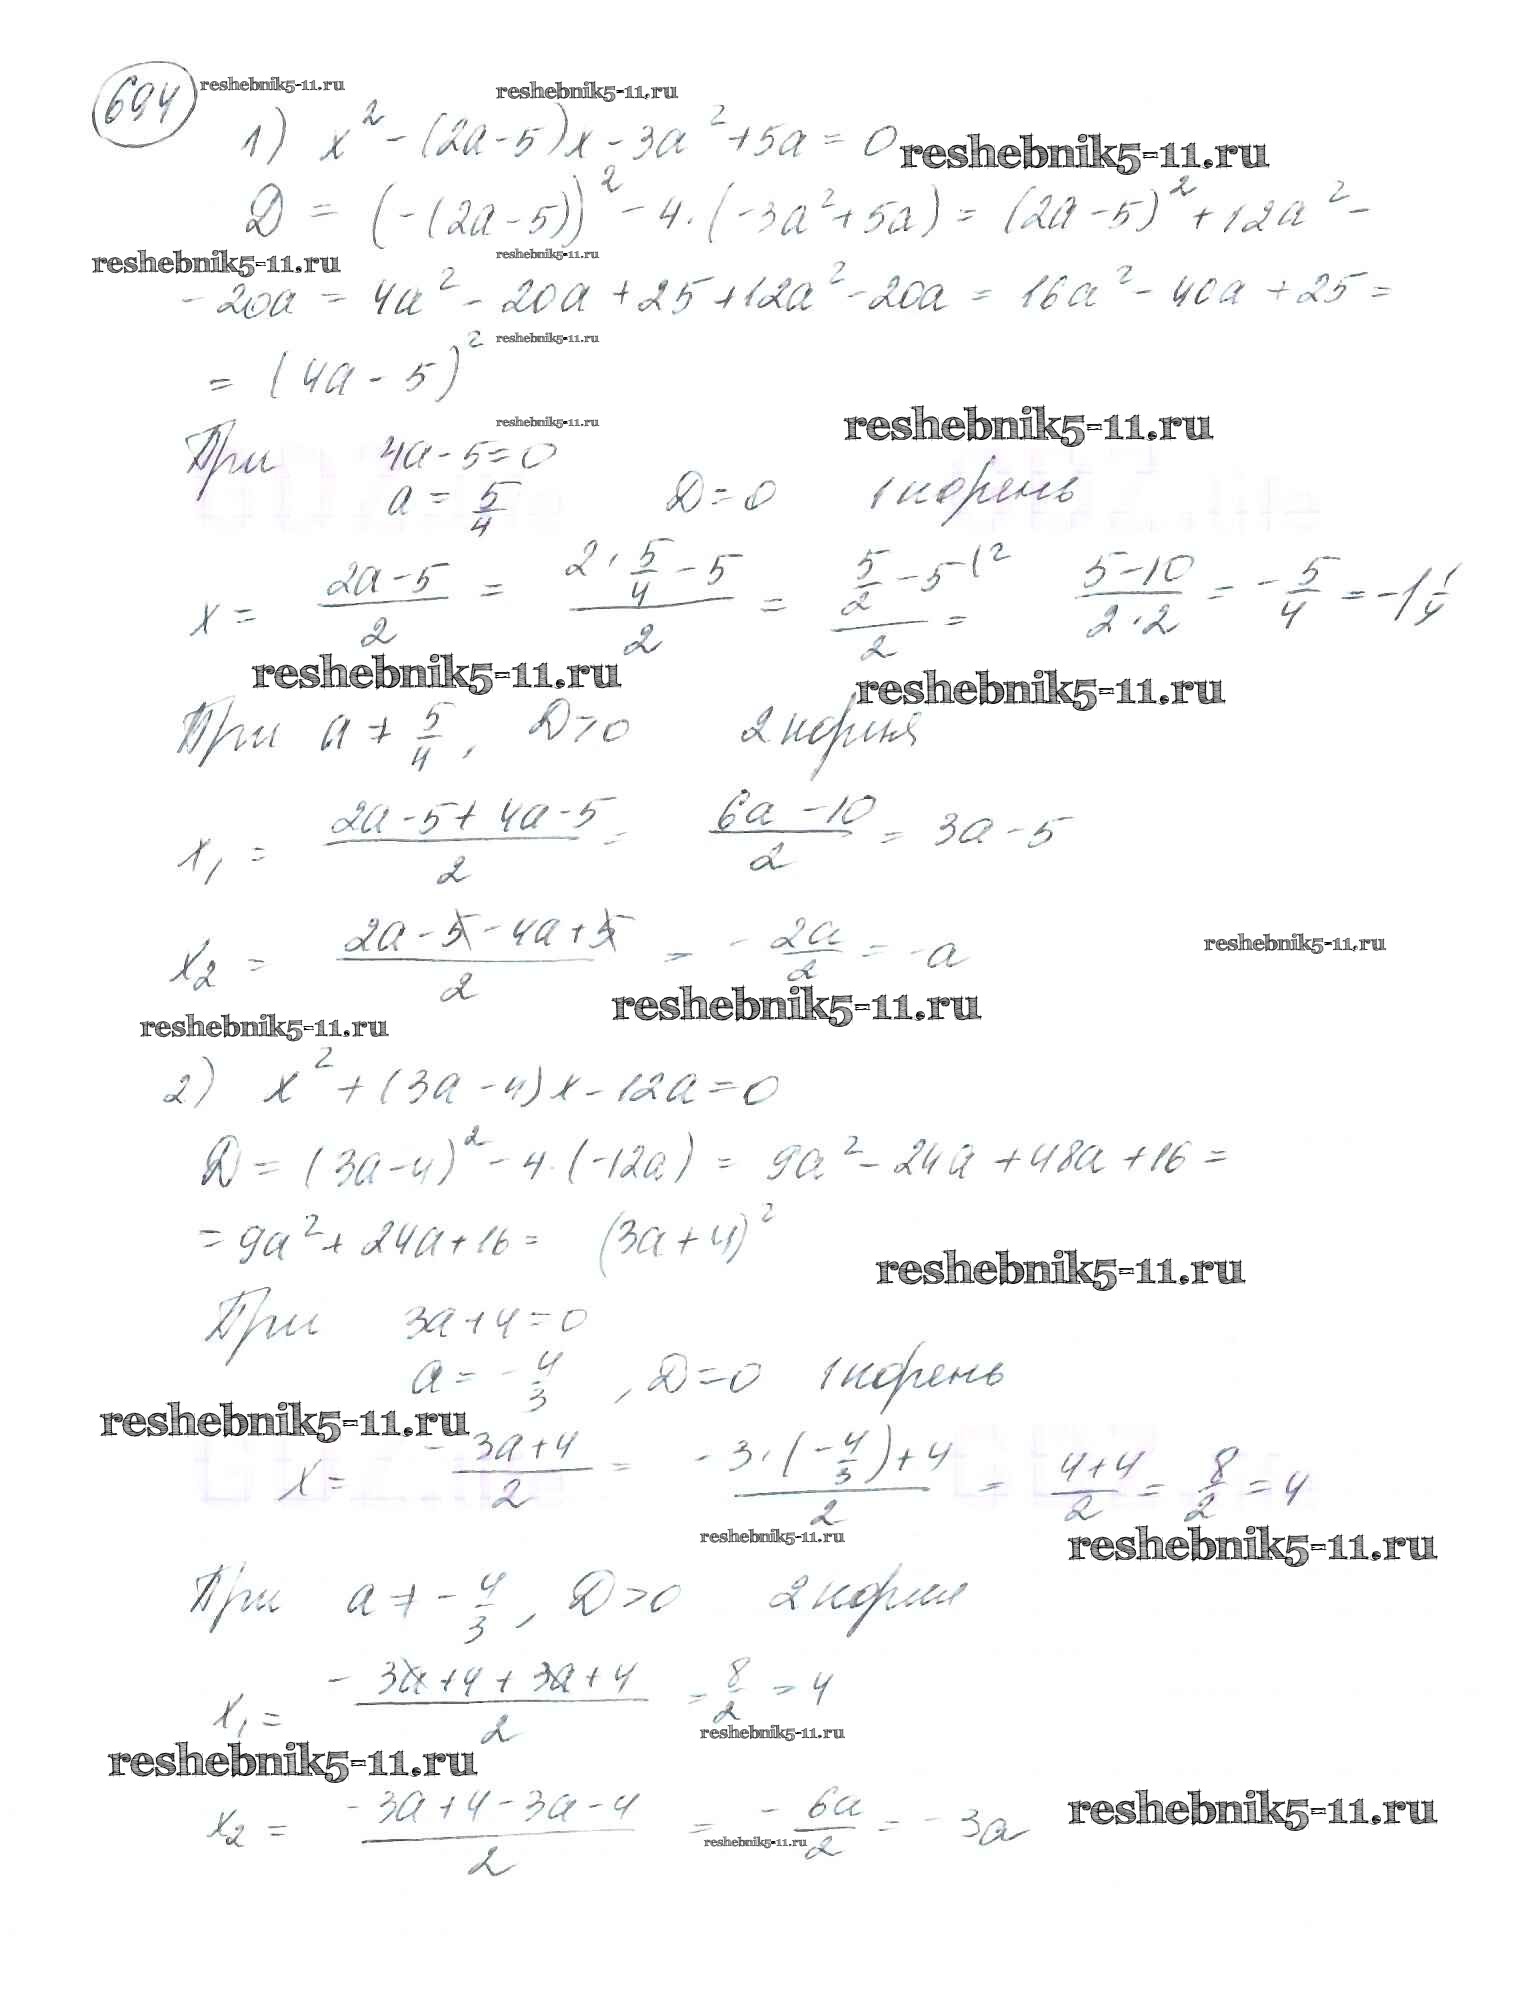 694 reshebnik5-11.ru reshebnik5-11.ru
1) x² - (2a - 5)x - 3a² + 5a = 0 reshebnik5-11.ru
D = (-(2a - 5))² - 4·(-3a² + 5a) = (2a - 5)² + 12a² -
reshebnik5-11.ru reshebnik5-11.ru
- 20a = 4a² - 20a + 25 + 12a² - 20a = 16a² - 40a + 25 =
reshebnik5-11.ru
= (4a - 5)²
reshebnik5-11.ru reshebnik5-11.ru
При 4a - 5 = 0
a = 5/4 D = 0 1 корень
x = (2a - 5)/2 = (2 · 5/4 - 5)/2 = (5/2 - 5^(2)/2 = (5 - 10)/(2·2) = - 5/4 = -1 1/4
reshebnik5-11.ru reshebnik5-11.ru
При a ≠ 5/4, D > 0 2 корня
x₁ = (2a - 5 + 4a - 5)/2 = (6a - 10)/2 = 3a - 5
x₂ = (2a - 5 - 4a + 5)/2 = - 2a/2 = -a
reshebnik5-11.ru
reshebnik5-11.ru reshebnik5-11.ru
2) x² + (3a - 4)x - 12a = 0
D = (3a - 4)² - 4·(-12a) = 9a² - 24a + 48a + 16 =
= 9a² + 24a + 16 = (3a + 4)²
reshebnik5-11.ru
При 3a + 4 = 0
a = - 4/3, D = 0 1 корень
reshebnik5-11.ru
x = (-3a + 4)/2 = (-3·(-4/3) + 4)/2 = (4 + 4)/2 = 8/2 = 4
reshebnik5-11.ru reshebnik5-11.ru
При a ≠ - 4/3, D > 0 2 корня
x₁ = (-3a + 4 + 3a + 4)/2 = 8/2 = 4
reshebnik5-11.ru reshebnik5-11.ru
x₂ = (-3a + 4 - 3a - 4)/2 = - 6a/2 = - 3a
reshebnik5-11.ru reshebnik5-11.ru